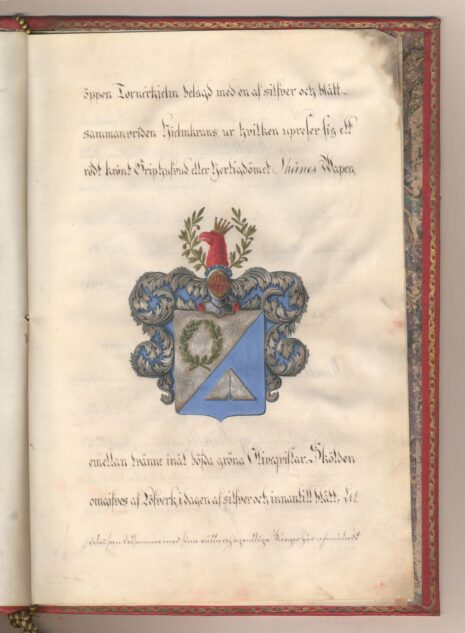 öppen Tornerhjelm belagd med en af silfver och blått
sammanvriden Hjelmkrans, ur hvilken upreser sig ett
rödt krönt Griphufvud eller Hertigdömet Skånes Wapen
emellan tvänne inåt böjda gröna Olivequistar. Skölden
omgifves af Löfverk i dagen af silfver och innantill blått,
som med sine rätte och egentelige Färger här afmålade